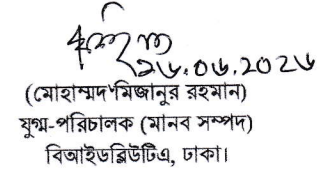 ২৬.০৬.২০২৬
(মোহাম্মদ মিজানুর রহমান)
যুগ্ম-পরিচালক (মানব সম্পদ)
বিআইডব্লিউটিএ, ঢাকা।